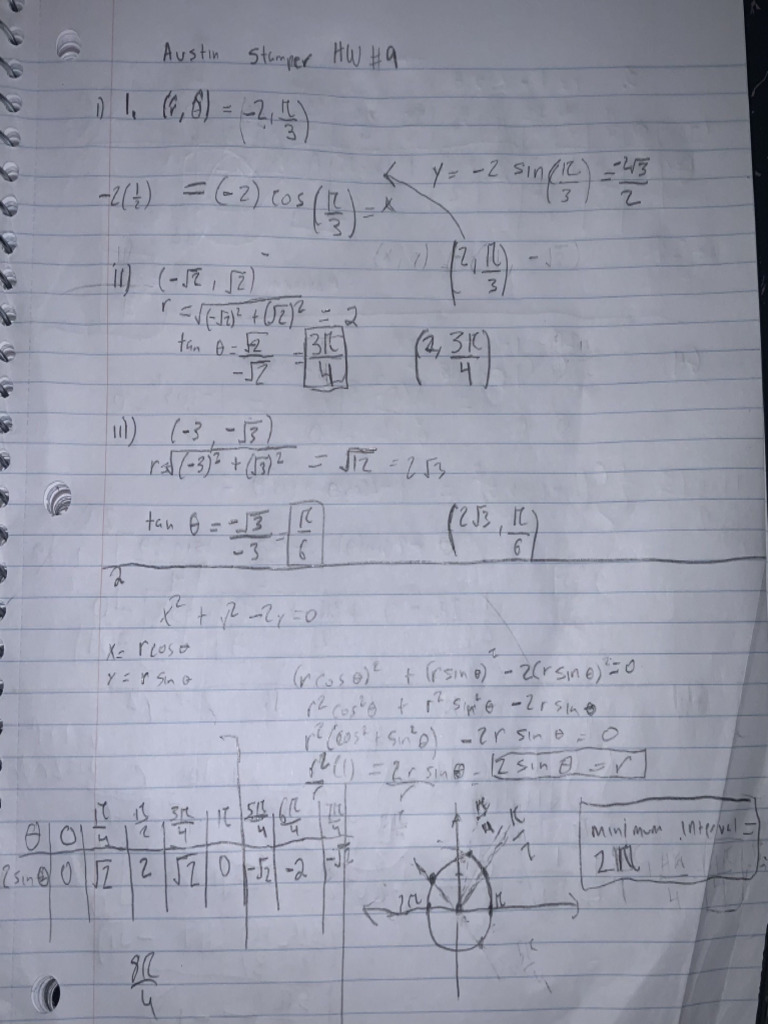 Austin Stamper HW #9
i) 1. (r, θ) = (-2, π/3)
y = -2 sin(π/3) = -2√3/2
-2(1/2) = (-2) cos(π/3) = x
(2, π/3)
ii) (-√2, √2)
r = √((-√2)² + (√2)²) = 2
tan θ = √2/-√2 = 3π/4 (2, 3π/4)
iii) (-3, -√3)
r = √((-3)² + (√3)²) = √12 = 2√3
tan θ = -√3/-3 = π/6 (2√3, π/6)
2
x² + y² - 2y = 0
x = r cos θ
y = r sin θ
(r cos θ)² + (r sin θ)² - 2(r sin θ)² = 0
r² cos² θ + r² sin² θ - 2r sin θ
r² (cos² + sin² θ) - 2r sin θ = 0
r²(1)/r = 2r sin θ/r 2 sin θ = r
θ 0 π/4 π/2 3π/4 π 5π/4 6π/4 7π/4
2 sin θ 0 √2 2 √2 0 -√2 -2 -√2
8π/4
π/4 π/2
2π π
minimum interval =
2π